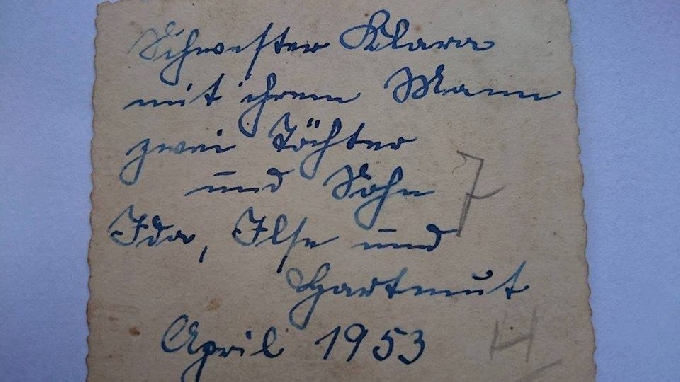 Schwester Klara
mit ihrem Mann
zwei Töchter
und Sohn 7
Ida, Ilse und
Hartmut
April 1953 H